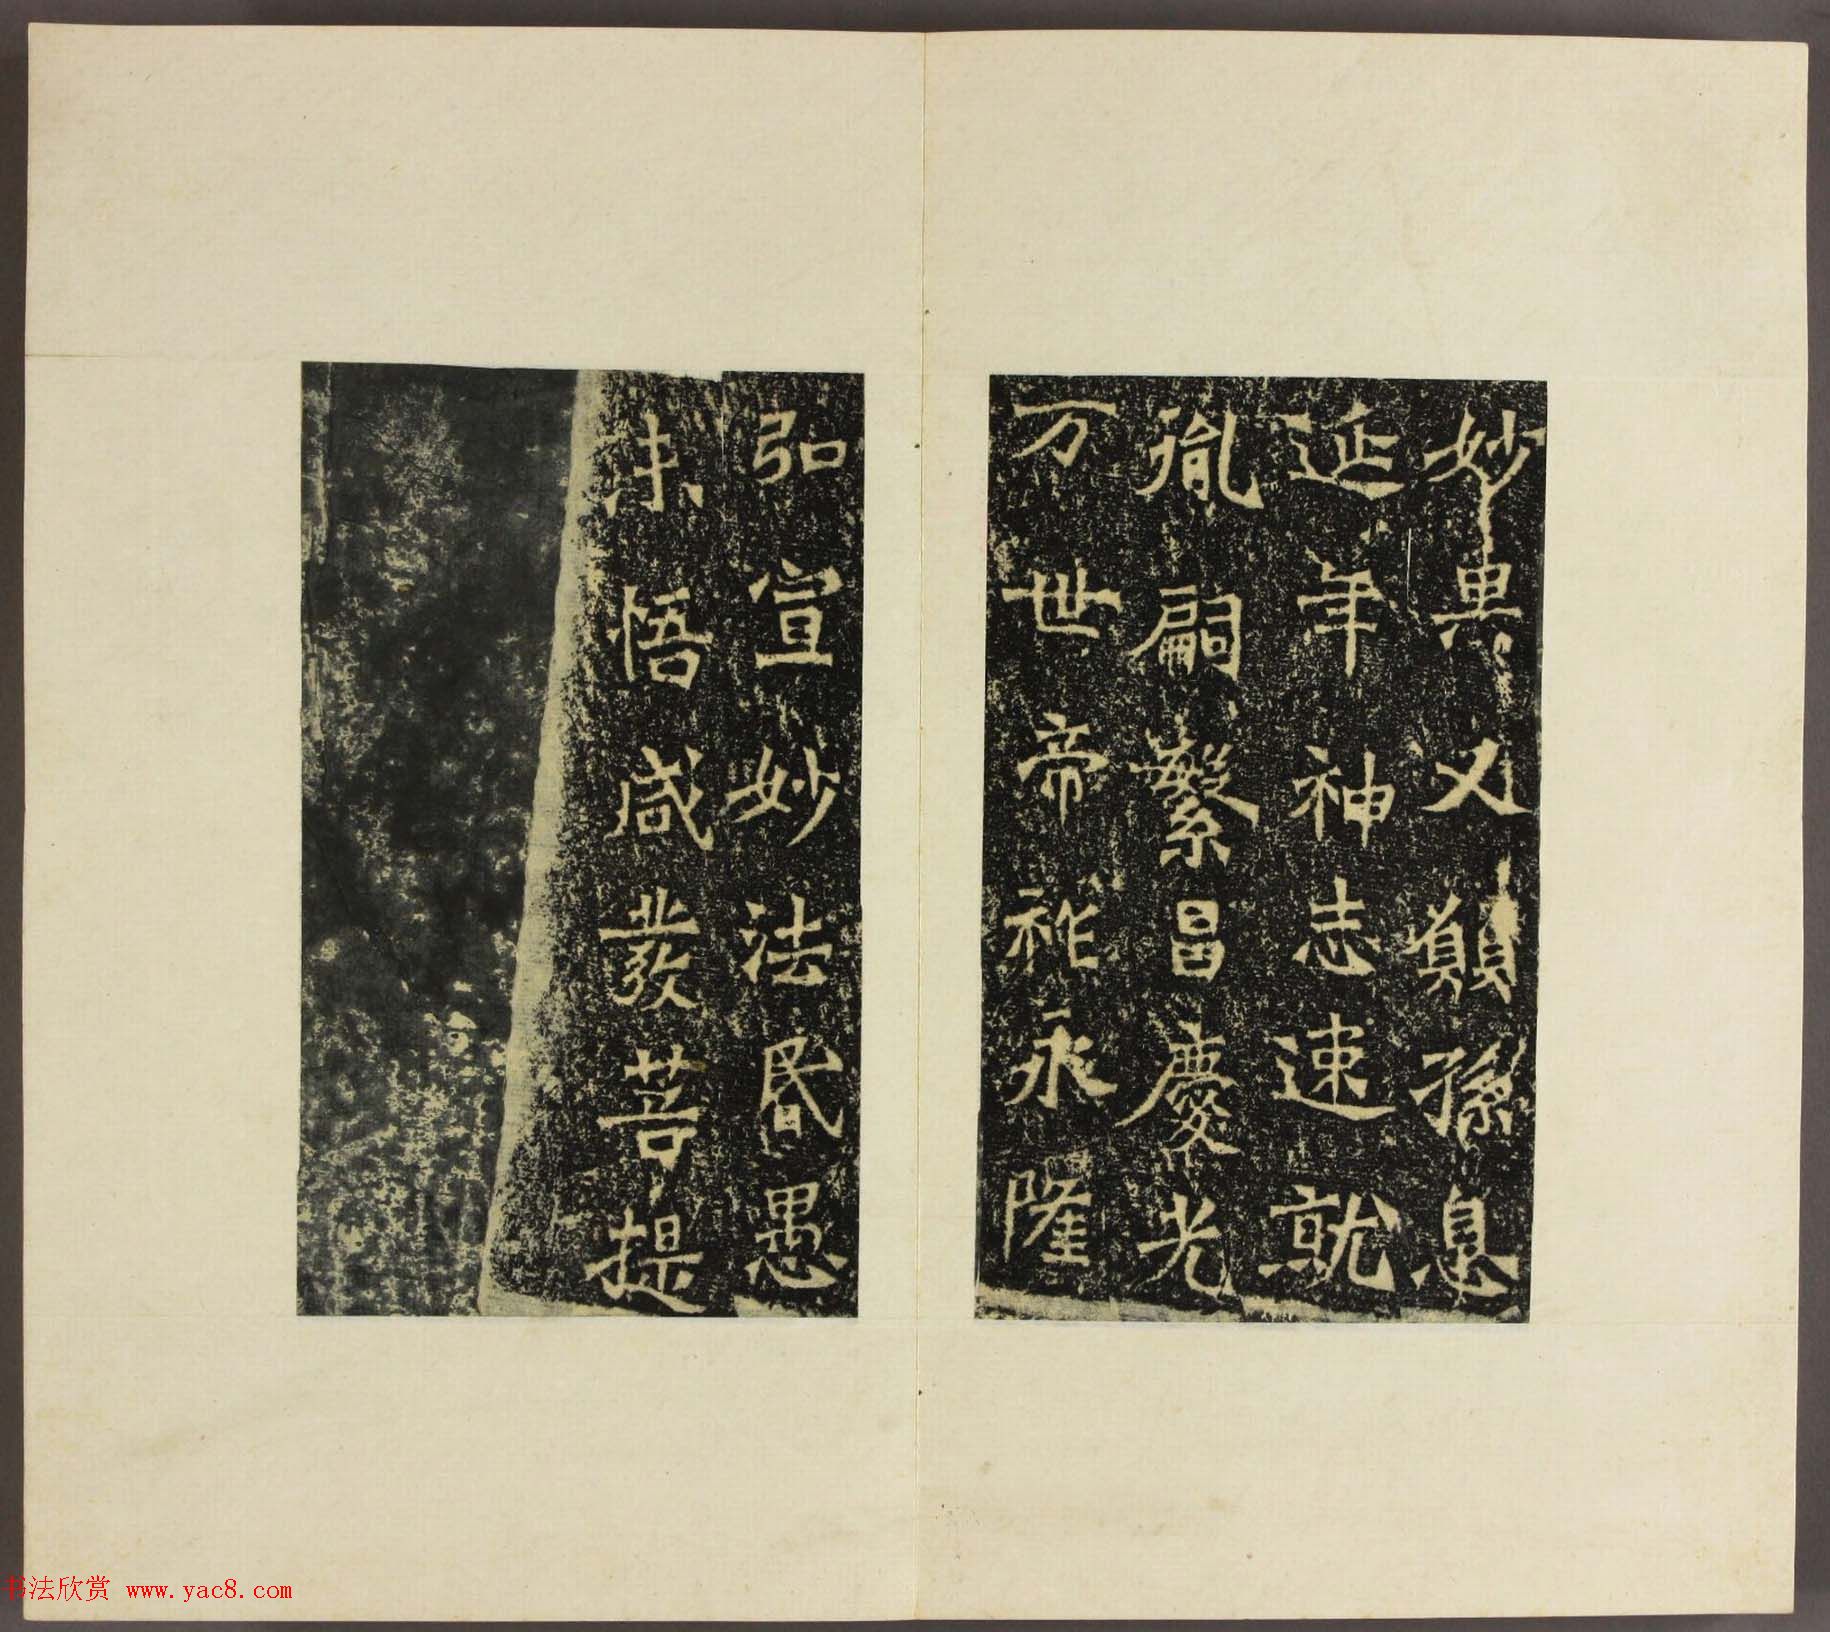 妙異又願孫息
延年神志速就
胤嗣繁昌慶光
万世帝祚永隆
弘宣妙法昏愚
未悟咸發菩提
书法欣赏 www.yac8.com